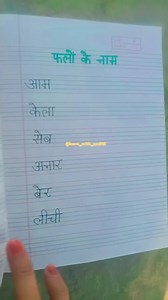 फलों के नाम
आम
केला
सेब
अनार
बेर
लीची